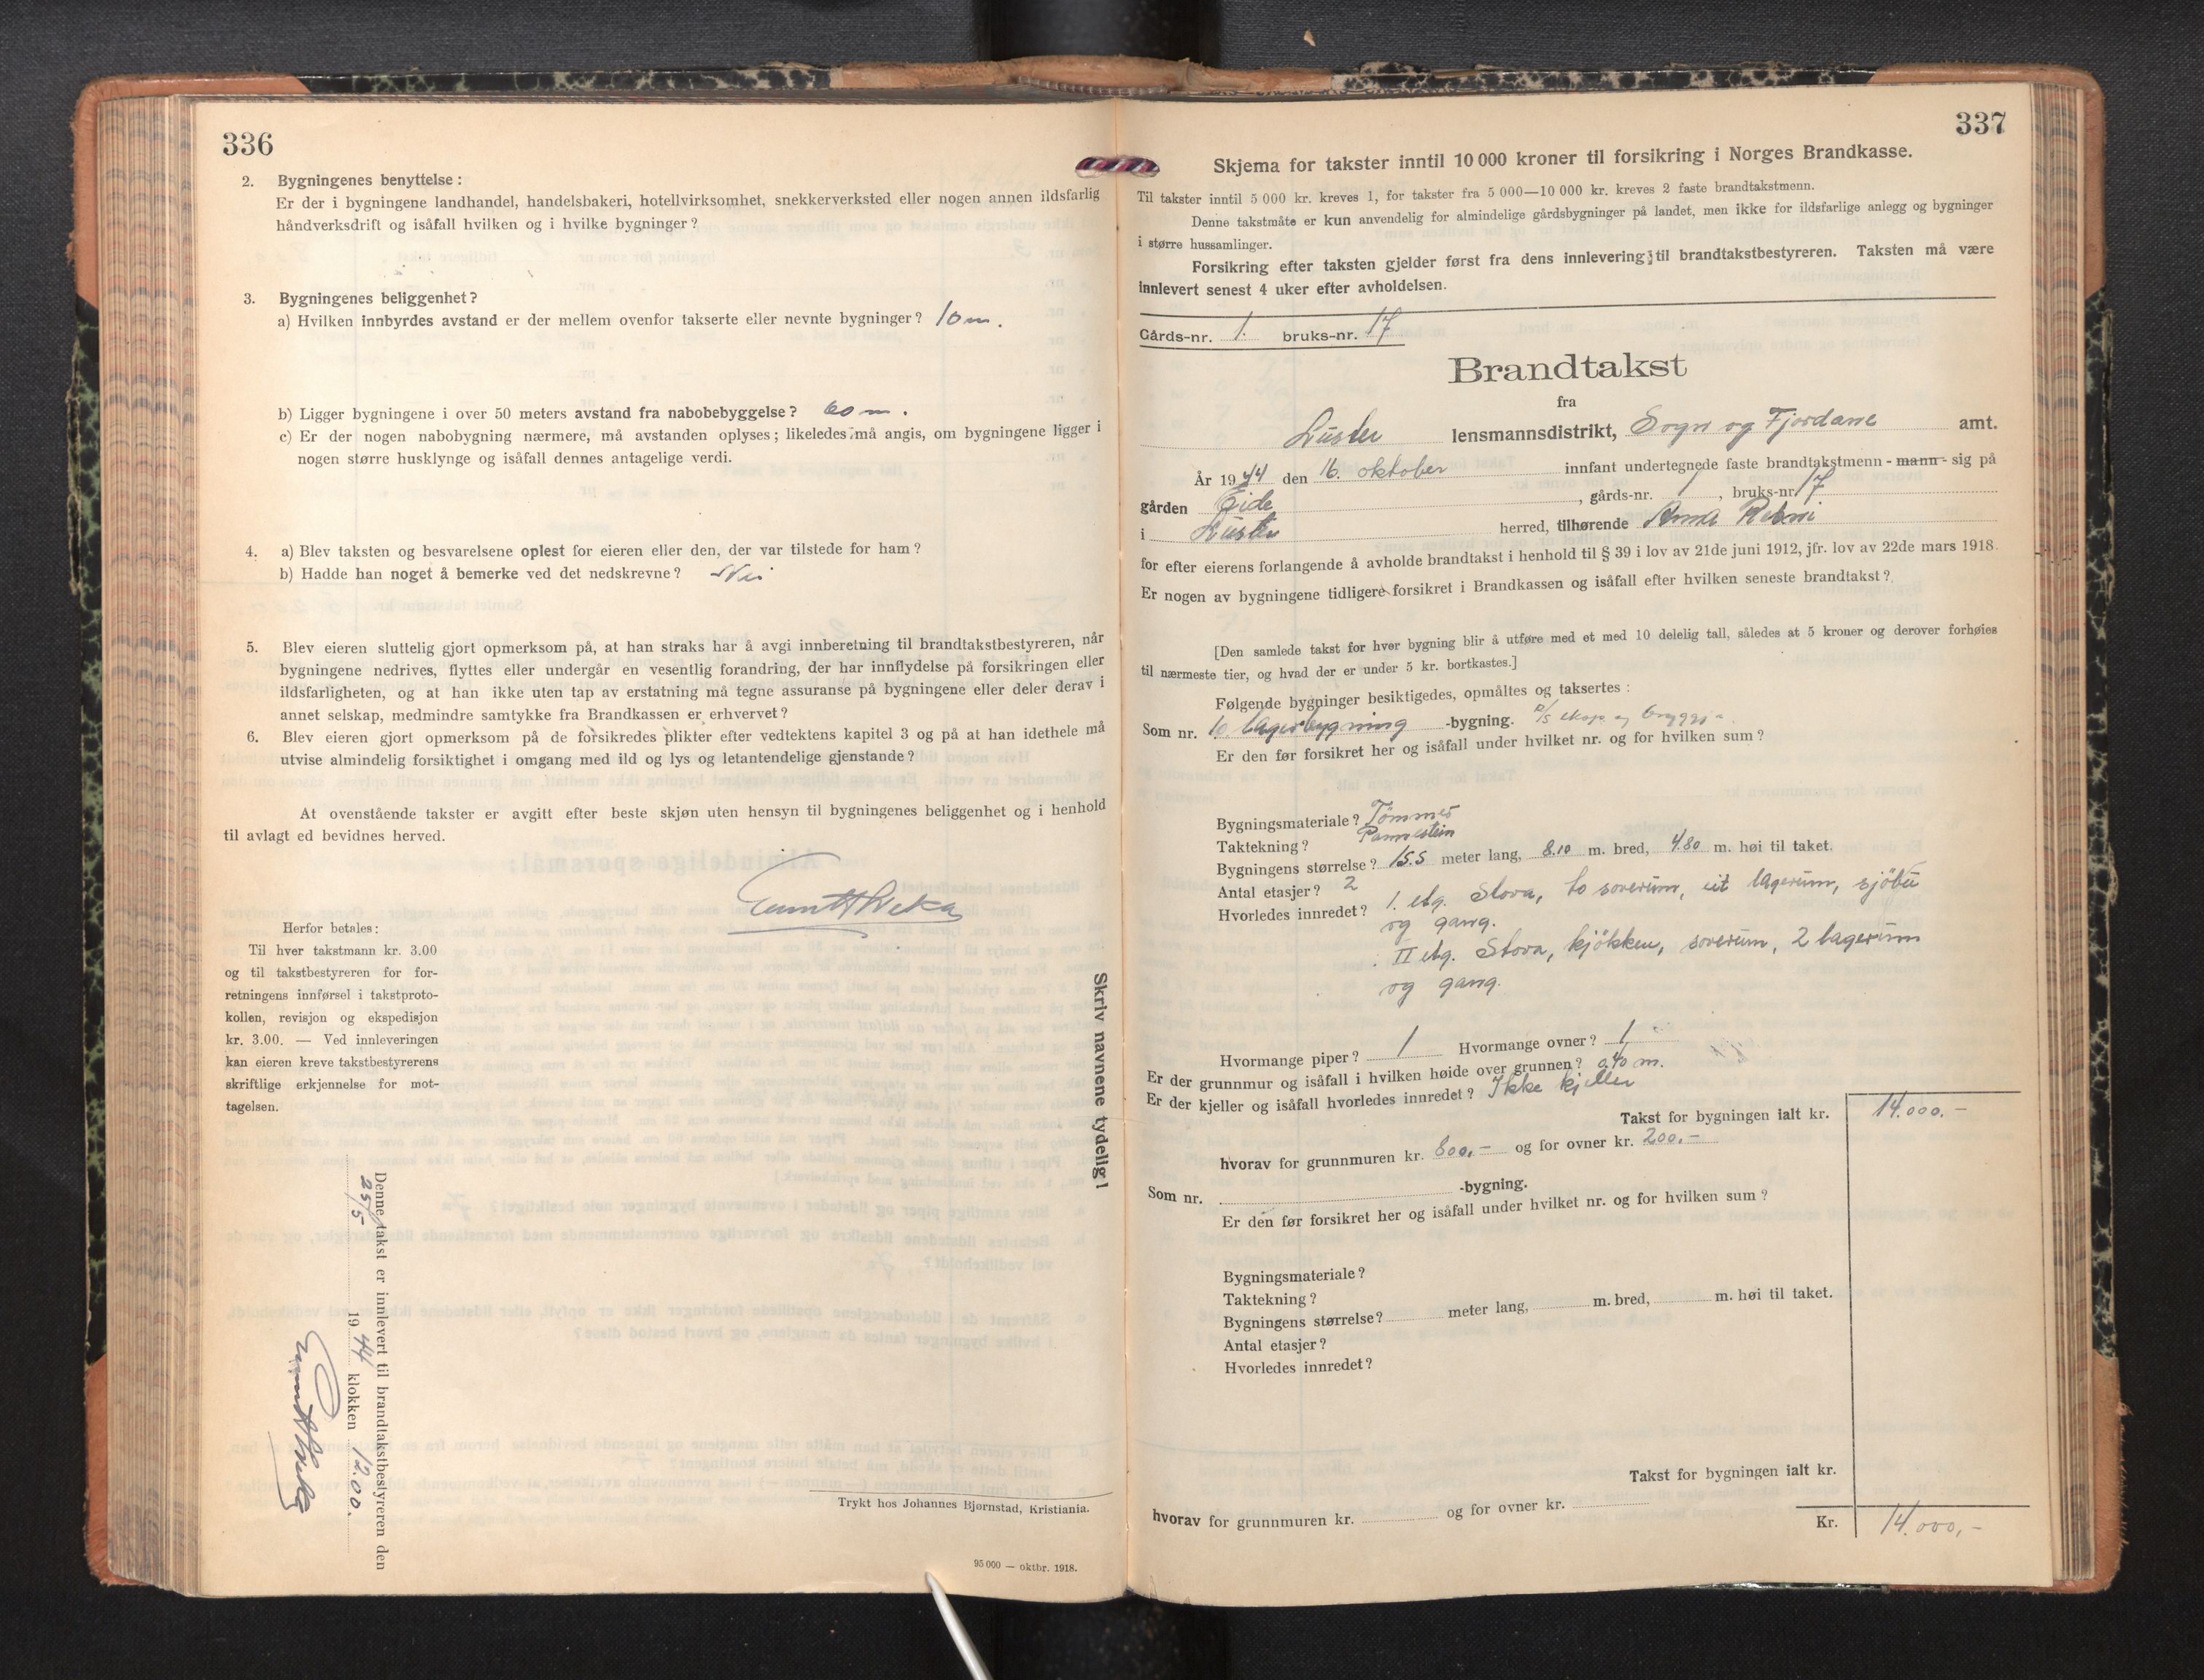 336
2. Bygningenes benyttelse:
Er der i bygningene landhandel, handelsbakeri, hotellvirksomhet, snekkerverksted eller nogen annen ildsfarlig
håndverksdrift og isåfall hvilken og i hvilke bygninger?
3. Bygningenes beliggenhet?
a) Hvilken innbyrdes avstand er der mellem ovenfor takserte eller nevnte bygninger? 10 m.
b) Ligger bygningene i over 50 meters avstand fra nabobebyggelse? 60 m.
c) Er der nogen nabobygning nærmere, må avstanden oplyses; likeledes må angis, om bygningene ligger i
nogen større husklynge og isåfall dennes antagelige verdi.
4. a) Blev taksten og besvarelsene oplest for eieren eller den, der var tilstede for ham?
b) Hadde han noget å bemerke ved det nedskrevne? Nei
5. Blev eieren sluttelig gjort opmerksom på, at han straks har å avgi innberetning til brandtakstbestyreren, når
bygningene nedrives, flyttes eller undergår en vesentlig forandring, der har innflydelse på forsikringen eller
ildsfarligheten, og at han ikke uten tap av erstatning må tegne assuranse på bygningene eller deler derav i
annet selskap, medmindre samtykke fra Brandkassen er erhvervet?
6. Blev eieren gjort opmerksom på de forsikredes plikter efter vedtektens kapitel 3 og på at han idethele må
utvise almindelig forsiktighet i omgang med ild og lys og letantendelige gjenstande?
At ovenstående takster er avgitt efter beste skjøn uten hensyn til bygningenes beliggenhet og i henhold
til avlagt ed bevidnes herved.
Herfor betales:
Til hver takstmann kr. 3.00
og til takstbestyreren for for-
retningens innførsel i takstproto-
kollen, revisjon og ekspedisjon
kr. 3.00. — Ved innleveringen
kan eieren kreve takstbestyrerens
skriftlige erkjennelse for mot-
tagelsen.
Skriv navnene tydelig!
Denne takst er innlevert til brandtakstbestyreren den
25/5 1944 klokken 12.00.
Trykt hos Johannes Bjørnstad, Kristiania.
95 000 — oktbr. 1918.
337
Skjema for takster inntil 10 000 kroner til forsikring i Norges Brandkasse.
Til takster inntil 5 000 kr. kreves 1, for takster fra 5 000—10 000 kr. kreves 2 faste brandtakstmenn.
Denne takstmåte er kun anvendelig for almindelige gårdsbygninger på landet, men ikke for ildsfarlige anlegg og bygninger
i større hussamlinger.
Forsikring efter taksten gjelder først fra dens innlevering til brandtakstbestyreren. Taksten må være
innlevert senest 4 uker efter avholdelsen.
Gårds-nr. 1. bruks-nr. 17
Brandtakst
fra
Luster lensmannsdistrikt, Sogn og Fjordane amt.
År 1944 den 16. oktober innfant undertegnede faste brandtakstmenn - mann - sig på
gården Eide, gårds-nr. 1, bruks-nr. 17
i Luster herred, tilhørende Anna
for efter eierens forlangende å avholde brandtakst i henhold til § 39 i lov av 21de juni 1912, jfr. lov av 22de mars 1918.
Er nogen av bygningene tidligere forsikret i Brandkassen og isåfall efter hvilken seneste brandtakst?
[Den samlede takst for hver bygning blir å utføre med et med 10 delelig tall, således at 5 kroner og derover forhøies
til nærmeste tier, og hvad der er under 5 kr. bortkastes.]
Følgende bygninger besiktigedes, opmåltes og taksertes:
Som nr. lagerbygning -bygning.
Er den før forsikret her og isåfall under hvilket nr. og for hvilken sum?
Bygningsmateriale? Tømmer
Taktekning? Pannestein
Bygningens størrelse? 15.5 meter lang, 8.10 m. bred, 4.80 m. høi til taket.
Antal etasjer? 2
Hvorledes innredet? 1. etg. Stova, to soverum, eit lagerum, sjöbu
og gang.
II etg. Stova, kjökken, soverum, 2 lagerum
og gang.
Hvormange piper? 1 Hvormange ovner? 1
Er der grunnmur og isåfall i hvilken høide over grunnen? 0,40 m.
Er der kjeller og isåfall hvorledes innredet? Ikke kjeller
Takst for bygningen ialt kr. 14.000.-
hvorav for grunnmuren kr. 800.- og for ovner kr. 200.-
Som nr. -bygning.
Er den før forsikret her og isåfall under hvilket nr. og for hvilken sum?
Bygningsmateriale?
Taktekning?
Bygningens størrelse? meter lang, m. bred, m. høi til taket.
Antal etasjer?
Hvorledes innredet?
Takst for bygningen ialt kr.
hvorav for grunnmuren kr. og for ovner kr.
Kr. 14.000,-